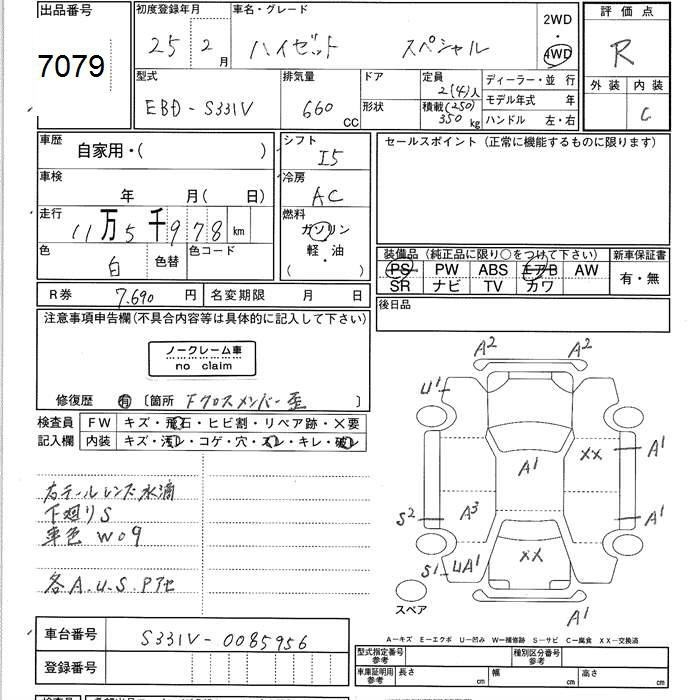 出品番号
7079
初度登録年月
25 2 月
車名・グレード
ハイゼット スペシャル
2WD
4WD
評価点
R
外装 内装
C
型式
EBD-S331V
排気量
660 CC
ドア
形状
定員
2(4)人
積載(250)
350 kg
ディーラー・並行
モデル年式 年
ハンドル 左・右
車歴
自家用・( )
シフト
I5
車検
年 月( 日)
冷房
AC
走行
11万5千978 km
燃料
ガソリン
軽・油
( )
色
白
色替
色コード
R券 7,690 円
名変期限 月 日
セールスポイント(正常に機能するものに限ります)
装備品(純正品に限り○をつけて下さい)
新車保証書
PS PW ABS エアB AW
SR ナビ TV カワ
有・無
後日品
注意事項申告欄(不具合内容等は具体的に記入して下さい)
ノークレーム車
no claim
修復歴 有 〔箇所 Fクロスメンバー歪 〕
検査員
記入欄
FW キズ・飛石・ヒビ割・リペア跡・×要
内装 キズ・汚レ・コゲ・穴・スレ・キレ・破レ
右テールレンズ水滴
下廻りS
車色 W09
各A.U.S.Pアセ
A2 A2
U1
A1
XX
A1
S2
A3
A1
XX
S1 UA1
A1
スペア
A-キズ E-エクボ U-凹み W-補修跡 S-サビ C-腐食 XX-交換済
車台番号 S331V-0085956
登録番号
型式指定番号
参考
種別区分番号
参考
車庫証明用
参考
長さ cm
幅 cm
高さ cm